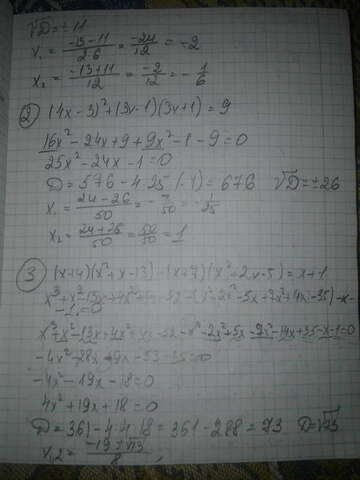 √D = ±11
x₁ = (-13-11)/(2·6) = -24/12 = -2
x₂ = (-13+11)/12 = -2/12 = -1/6
② (4x-3)²+(3x-1)(3x+1)=9
16x²-24x+9+9x²-1-9=0
25x²-24x-1=0
D=576-4·25·(-1)=676 √D=±26
x₁ = (24-26)/50 = -2/50 = -1/25
x₂ = (24+26)/50 = 50/50 = 1
③ (x+4)(x²+x-13)-(x+7)(x²+2x-5)=x+1
-1=0
-4x²-19x-18=0
4x²+19x+18=0
D=361-4·4·18=361-288=73 D=√73
x₁,₂ = (-19±√73)/8,